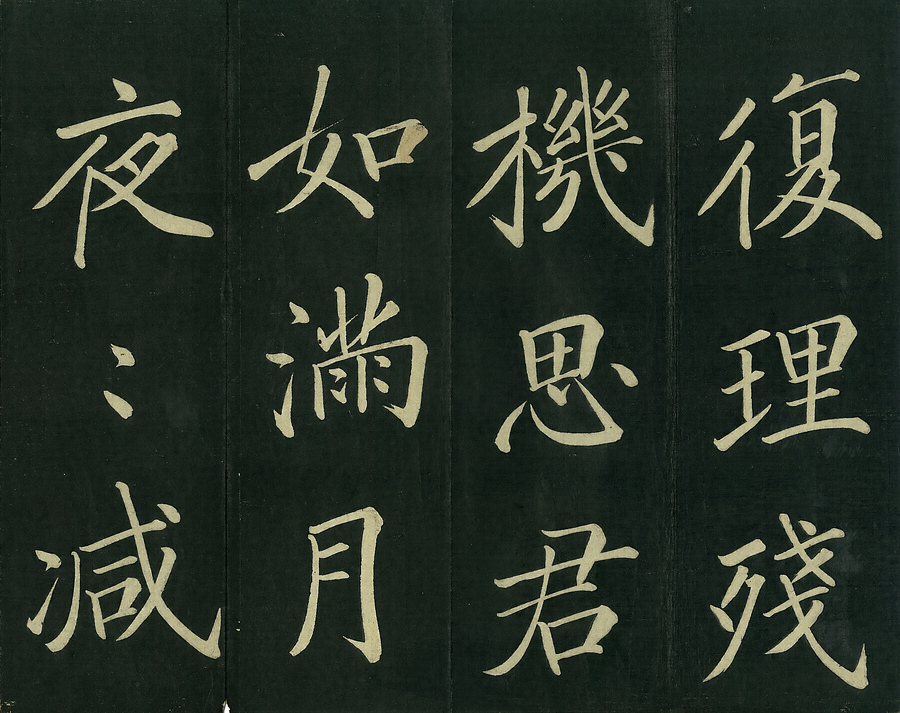 復理殘
機思君
如滿月
夜〻減